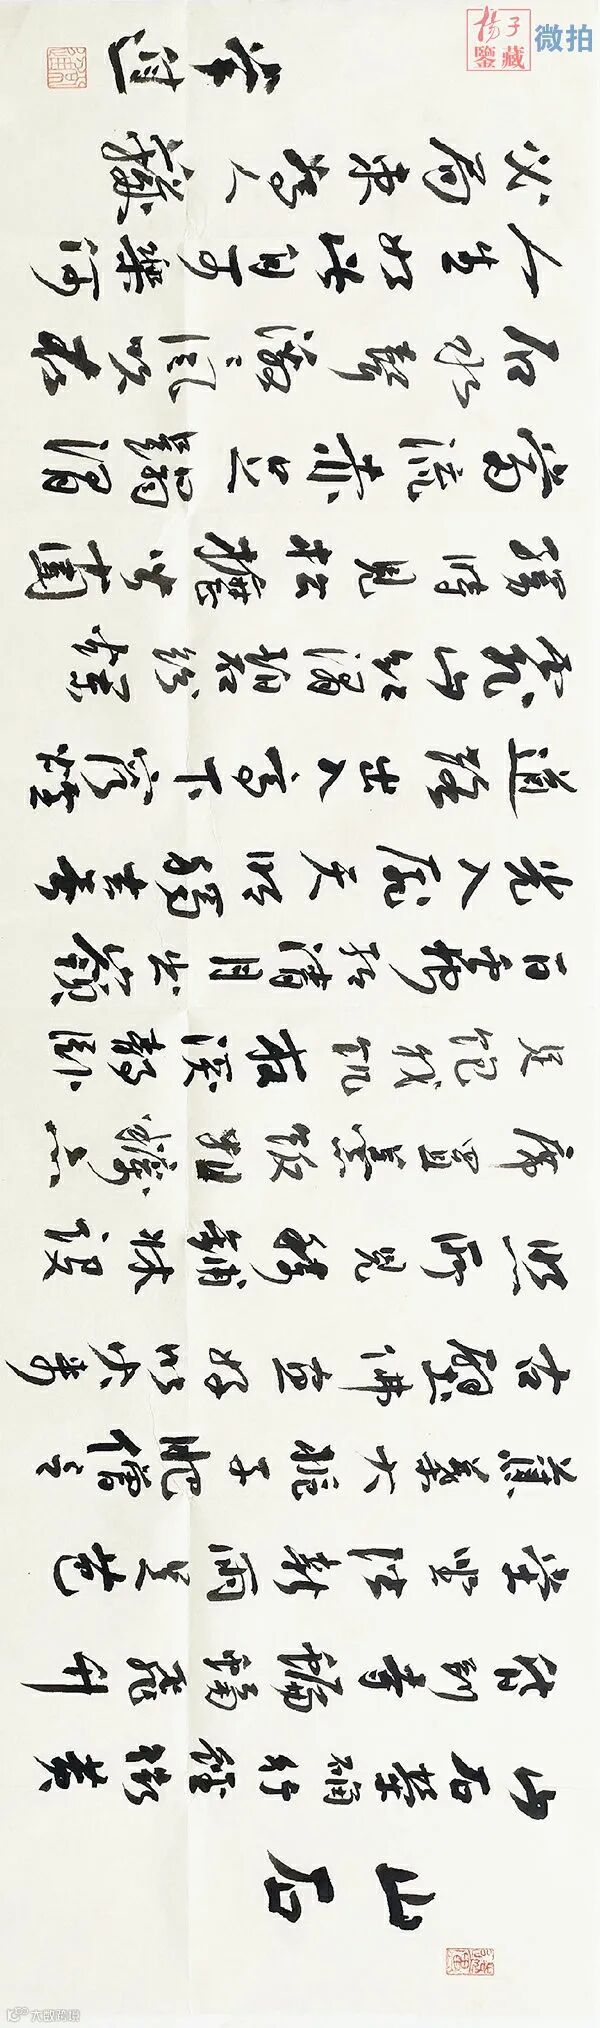 山石
山石犖确行徑微黃
昏到寺蝙蝠飛升
堂坐階新雨足芭
蕉葉大梔子肥僧言
古壁佛畫好以火來
照所見稀鋪床
席置羹飯粗糲亦
足飽我飢夜深靜臥
百蟲絕清月出嶺
光入扉天明獨去無
道路出入高下窮煙
霏山紅澗碧紛爛
漫時見松櫪皆十圍
當流赤足蹋澗
石水聲激激風吹衣
人生如此自可樂何
必局束為人鞿
楊子鑒藏
微拍
大数跨境